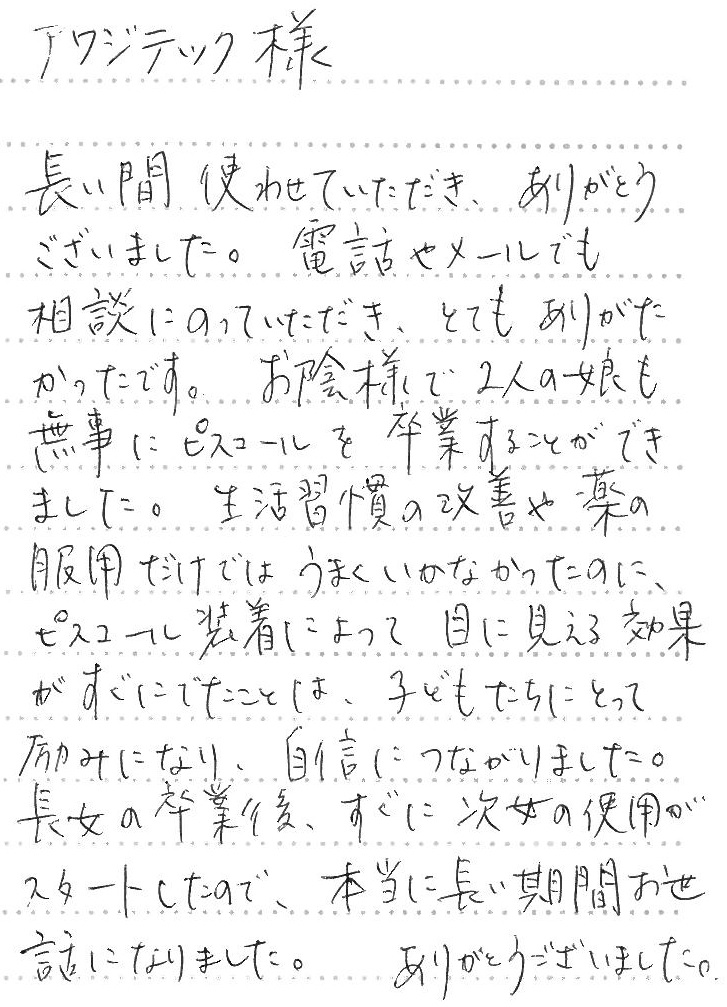 アワジテック様
長い間 使わせていただき、ありがとう
ございました。 電話やメールでも
相談にのっていただき、とても ありがた
かったです。 お陰様で 2人の娘も
無事に ピスコールを 卒業することができ
ました。 生活習慣の改善や薬の
服用だけでは うまくいかなかったのに、
ピスコール装着によって 目に見える効果
がすぐにでたことは、子どもたちにとって
励みになり、自信につながりました。
長女の卒業後、すぐに次女の使用が
スタートしたので、本当に長い期間お世
話になりました。 ありがとうございました。